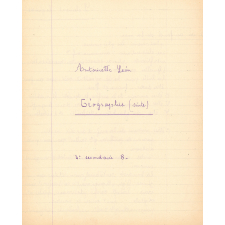 Antoinette
Géographie (suite)
4e secondaire B.